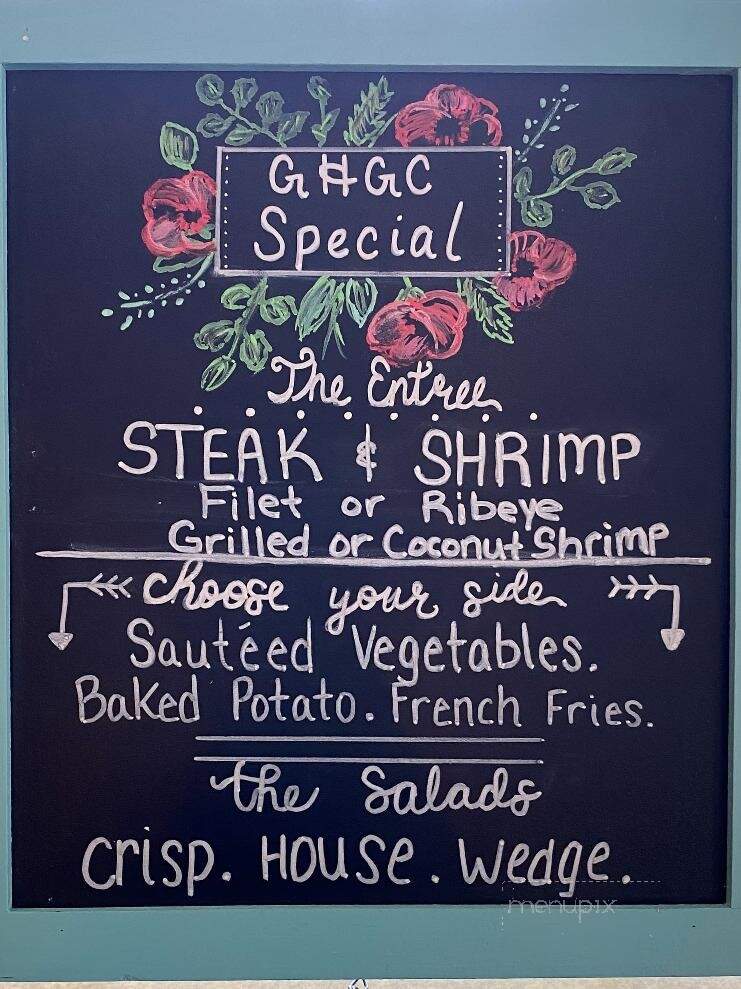 GHGC
Special
The Entree
STEAK & SHRIMP
Filet or Ribeye
Grilled or Coconut Shrimp
choose your side
Sautéed Vegetables.
Baked Potato. French Fries.
the Salads
Crisp. HOUSE. Wedge.
menupix